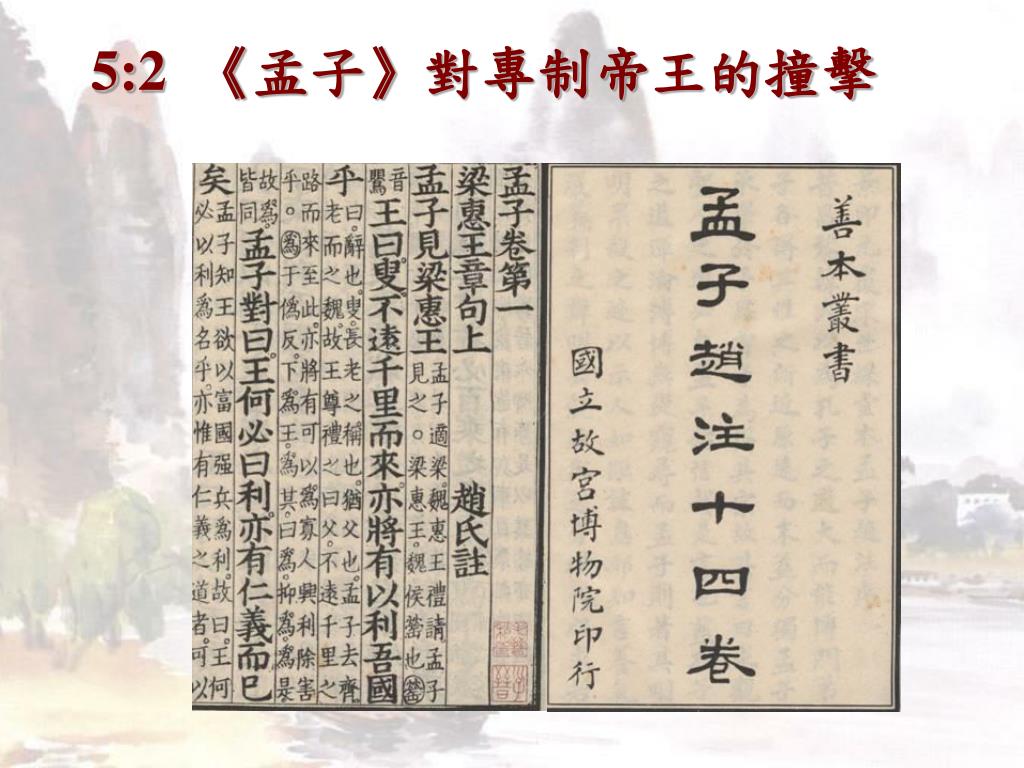 5:2 《孟子》對專制帝王的撞擊
善本叢書
孟子趙注十四卷
國立故宮博物院印行
孟子卷第一
梁惠王章句上 趙氏註
孟子見梁惠王 孟子適梁魏惠王禮請孟子
見之。梁惠王魏侯 也
音罌 王曰叟不遠千里而來亦將有以利吾國
乎 曰辭也叟長老之稱也猶父也孟子去齊
老而之魏故王尊禮之曰父不遠千里之
路而來至此亦將有可以為寡人興利除害
乎。為于偽反下為王為其曰為抑為為是
故為皆同 孟子對曰王何必曰利亦有仁義而已
矣 孟子知王欲以富國强兵為利故曰王何
必以利為名乎亦惟有仁義之道者可以